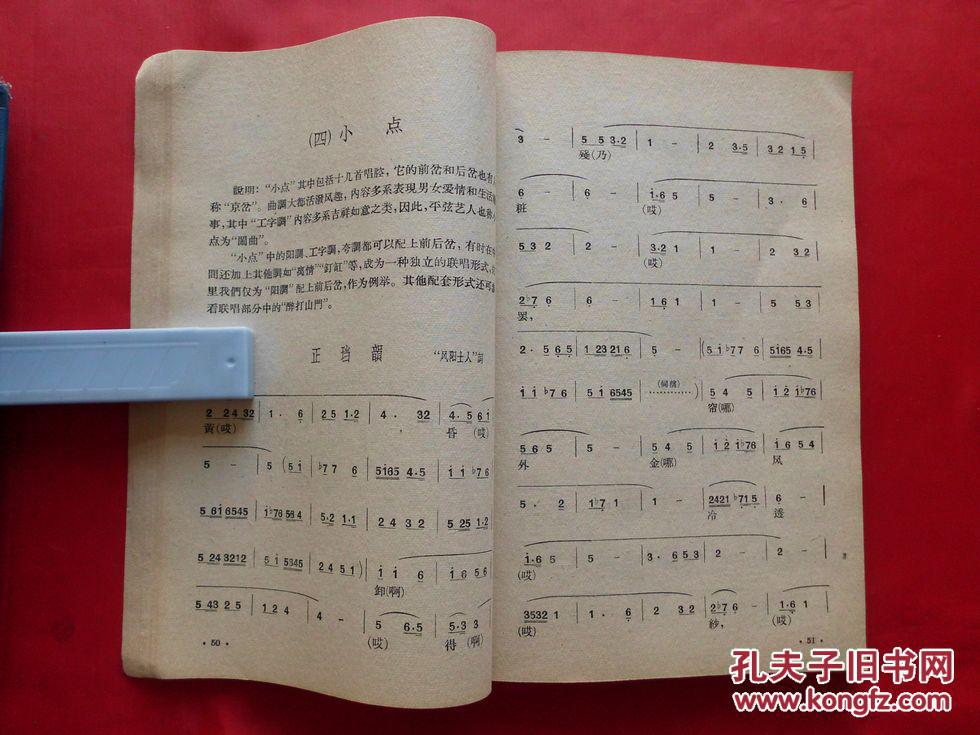 (四)小 点
說明：“小点”其中包括十几首唱腔，它的前岔和后岔也有
称“京岔”。曲調大都活潑风趣，內容多系表現男女爱情和生活
事，其中“工字調”內容多系吉祥如意之类，因此，平弦艺人也
点为“閙曲”。
“小点”中的阳調、工字調、夸調都可以配上前后岔，有时在
間还加上其他調如“离情”“釘缸”等，成为一种独立的联唱形式，
里我們仅为“阳調”配上前后岔，作为例举。其他配套形式还可
看联唱部分中的“醉打山門”。
正 韻 “风阳士人”詞
2 2 4 32 | 1 · 6 | 2 5 1·2 | 4 · 32 | 4 · 5 6 i
黃(哎) 昏 (哎)
5 – | 5 (5 i | ♭7 7 6 | 5165 4·5 | i i ♭7 6
5 6i 6545 | i♭76 564 | 5·2 1·1 | 2 4 3 2 | 5 25 1·2
5 24 3212 | 5 i 5345 | 2 4 5 1) | i i 6 | i 6 5 6
卸(啊)
5 43 2 5 | 1 2 4 | 4 – | 5 6·5 | 5·3 3
(哎) 得 (啊)
· 50 ·
3 – | 5 5 3·2 | 1 – | 2 3·5 | 3 2 1 5
殘(乃)
6 – | 6 – | i·6 5 | 5 – | 3 · 6
粧 (哎)
5 3 2 | 2 – | 3·2 1 | 1 – | 3 2 3 2
(哎)
2♭7 6 | 6 – | 1 6 1 | 1 – | 5 5 3
罢，
2 · 5 6 5 | 1 2321 6 | 5 – | (5 i ♭77 6 | 5165 4·5
i i ♭7 6 | 5 i 6545 | ………… | 5 4 5 | i 2 i♭76
窗(哪)
5 6 5 | 5 – | 5 4 5 | i 2 i♭76 | i 6 5 4
外 金(哪) 风
5 · 2 | 1♭7 1 | 1 – | 2421 ♭71 5 | 6 –
冷 透
i·6 5 | 5 – | 3 · 6 5 3 | 2 – | 2 –
(哎)
3532 1 | 1 · 6 | 2 3 2 | 2♭7 6 | 1·6 1
(哎) 紗， (哎)
· 51 ·
孔夫子旧书网
www.kongfz.com